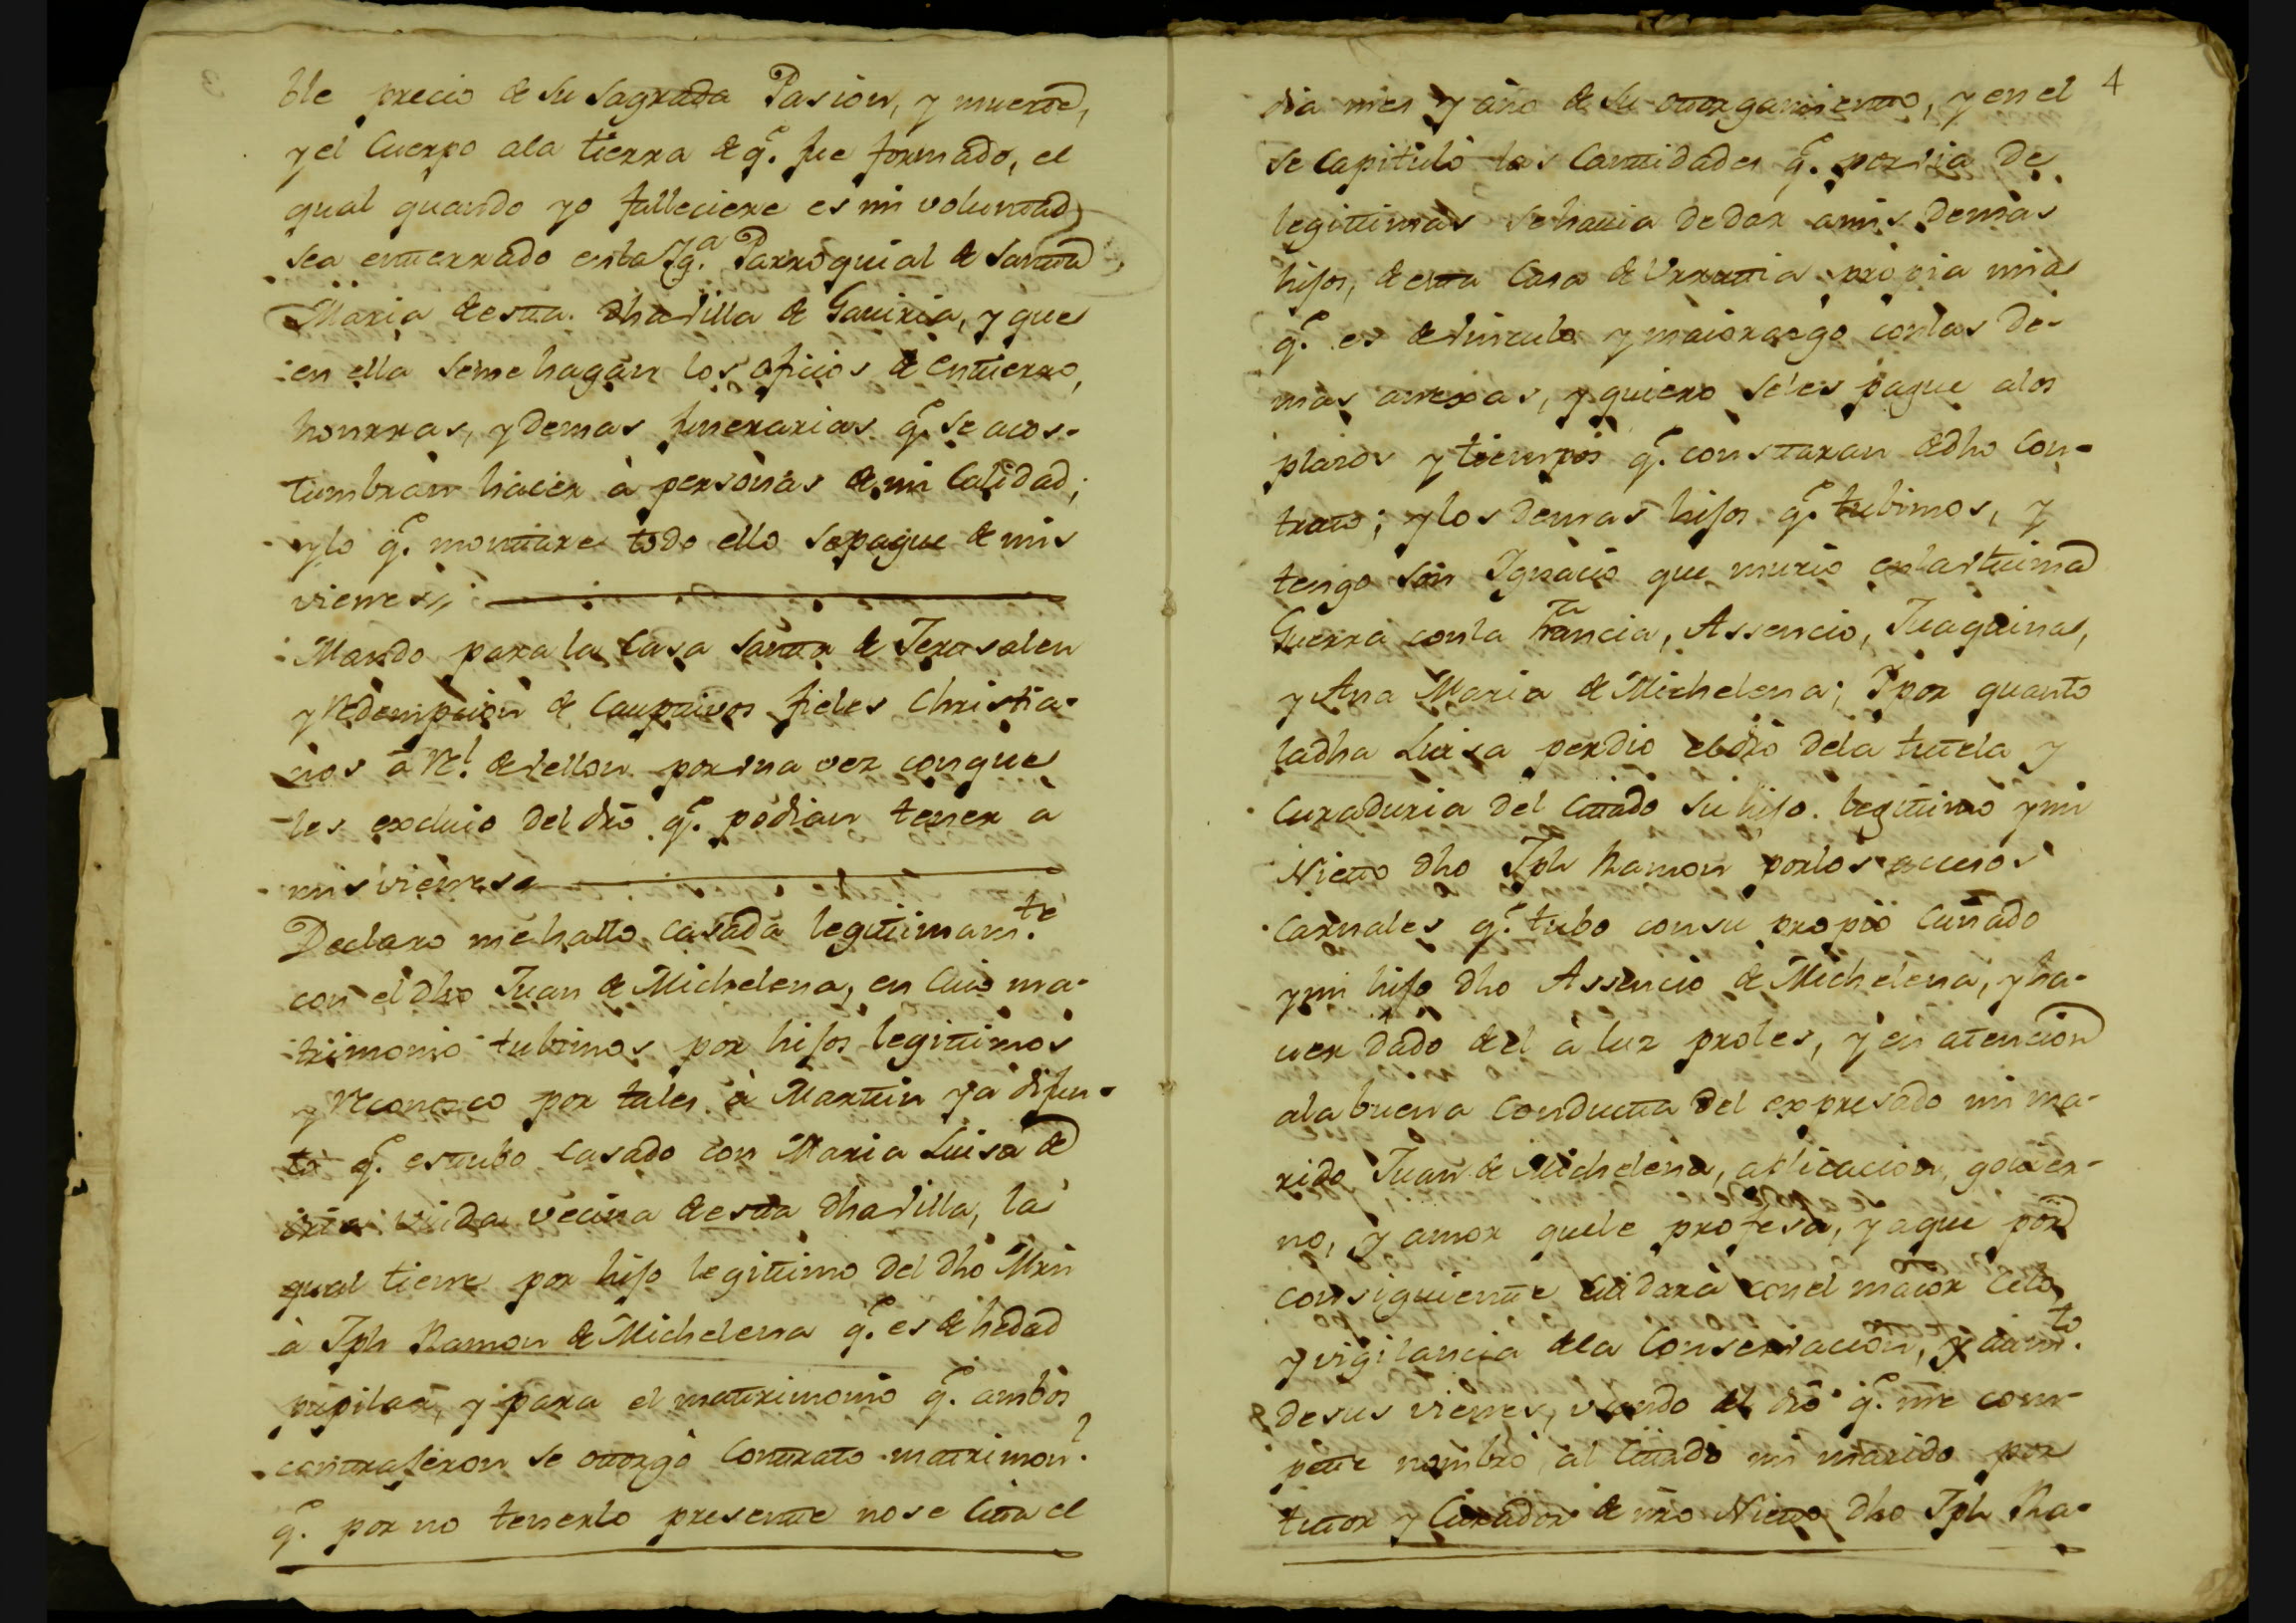 ble precio de su sagrada Pasion, y muerte,
y el Cuerpo ala tierra de q.e fue formado, el
qual quando yo falleciere es mi voluntad
sea enterrado en la Yg.a Parroquial de Santa
Maria de esta dha villa de Gaviria, y que
en ella seme hagan los oficios de entierro,
honrras, y demas funerarias q.e se acos-
tumbran hacer à personas de mi Calidad;
y lo q.e montare todo ello se pague de mis
vienes
Mando para la Casa Santa de Jerusalen
y Redempcion de Cauptivos fieles Christia-
nos a R.l de vellon por una vez con que
les excluio del dro q.e podian tener a
mis vienes
Declaro me hallo casada legitimam.te
con el dho Juan de Michelena, en cuio ma-
trimonio tubimos por hijos legitimos
y Reconosco por tales à Martin ya difun-
to q.e estubo casado con Maria Luisa de
iria viuda vecina de esta dha villa, la
qual tiene por hijo legitimo del dho Mrn
à Jph Ramon de Michelena q.e es de hedad
pupilar, y para el matrimonio q.e ambos
contrajeron se otorgò Contrato matrimon.l
q.e por no tenerlo presente no se cita el
4
dia mes y año de su otorgamiento, y en el
se capitulò las Cantidades q.e por via de
legitimas se havia de dar a mis demas
hijos, de esta Casa de Urrutia propia mia
q.e es de vinculo y maiorasgo con las de-
mas anexas, y quiero se les pague alos
plazos y tiempos q.e constaran de dho Con-
trato; y los demas hijos q.e tubimos, y
tengo son Ygnacio que murio en la vltima
Guerra con la Francia, Assencio, Juaquina,
y Ana Maria de Michelena; Y por quanto
la dha Luisa perdio el dro dela tutela y
Curaduria del Citado su hijo legitimo y mi
Nieto dho Jph Ramon por los accesos
carnales q.e tubo con su propio Cuñado
y mi hijo dho Assencio de Michelena, y ha-
ver dado del à luz proles, y en atencion
ala buena Conducta del expresado mi ma-
rido Juan de Michelena, aplicacion, govier-
no, y amor que le profesa, y a que por
consiguiente cuidarà con el maior celo,
y vigilancia dela Conservacion, y aum.to
de sus vienes, vsando del dro q.e me com-
pete nombro al Citado mi marido por
tutor y Curador de nro Nieto dho Jph Ra-